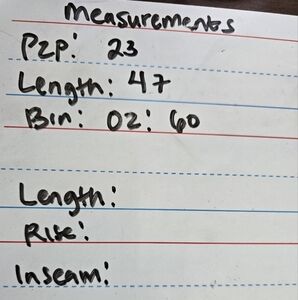 Measurements
P2P: 23
Length: 47
Bin: 02: 60
Length:
Rise:
Inseam: